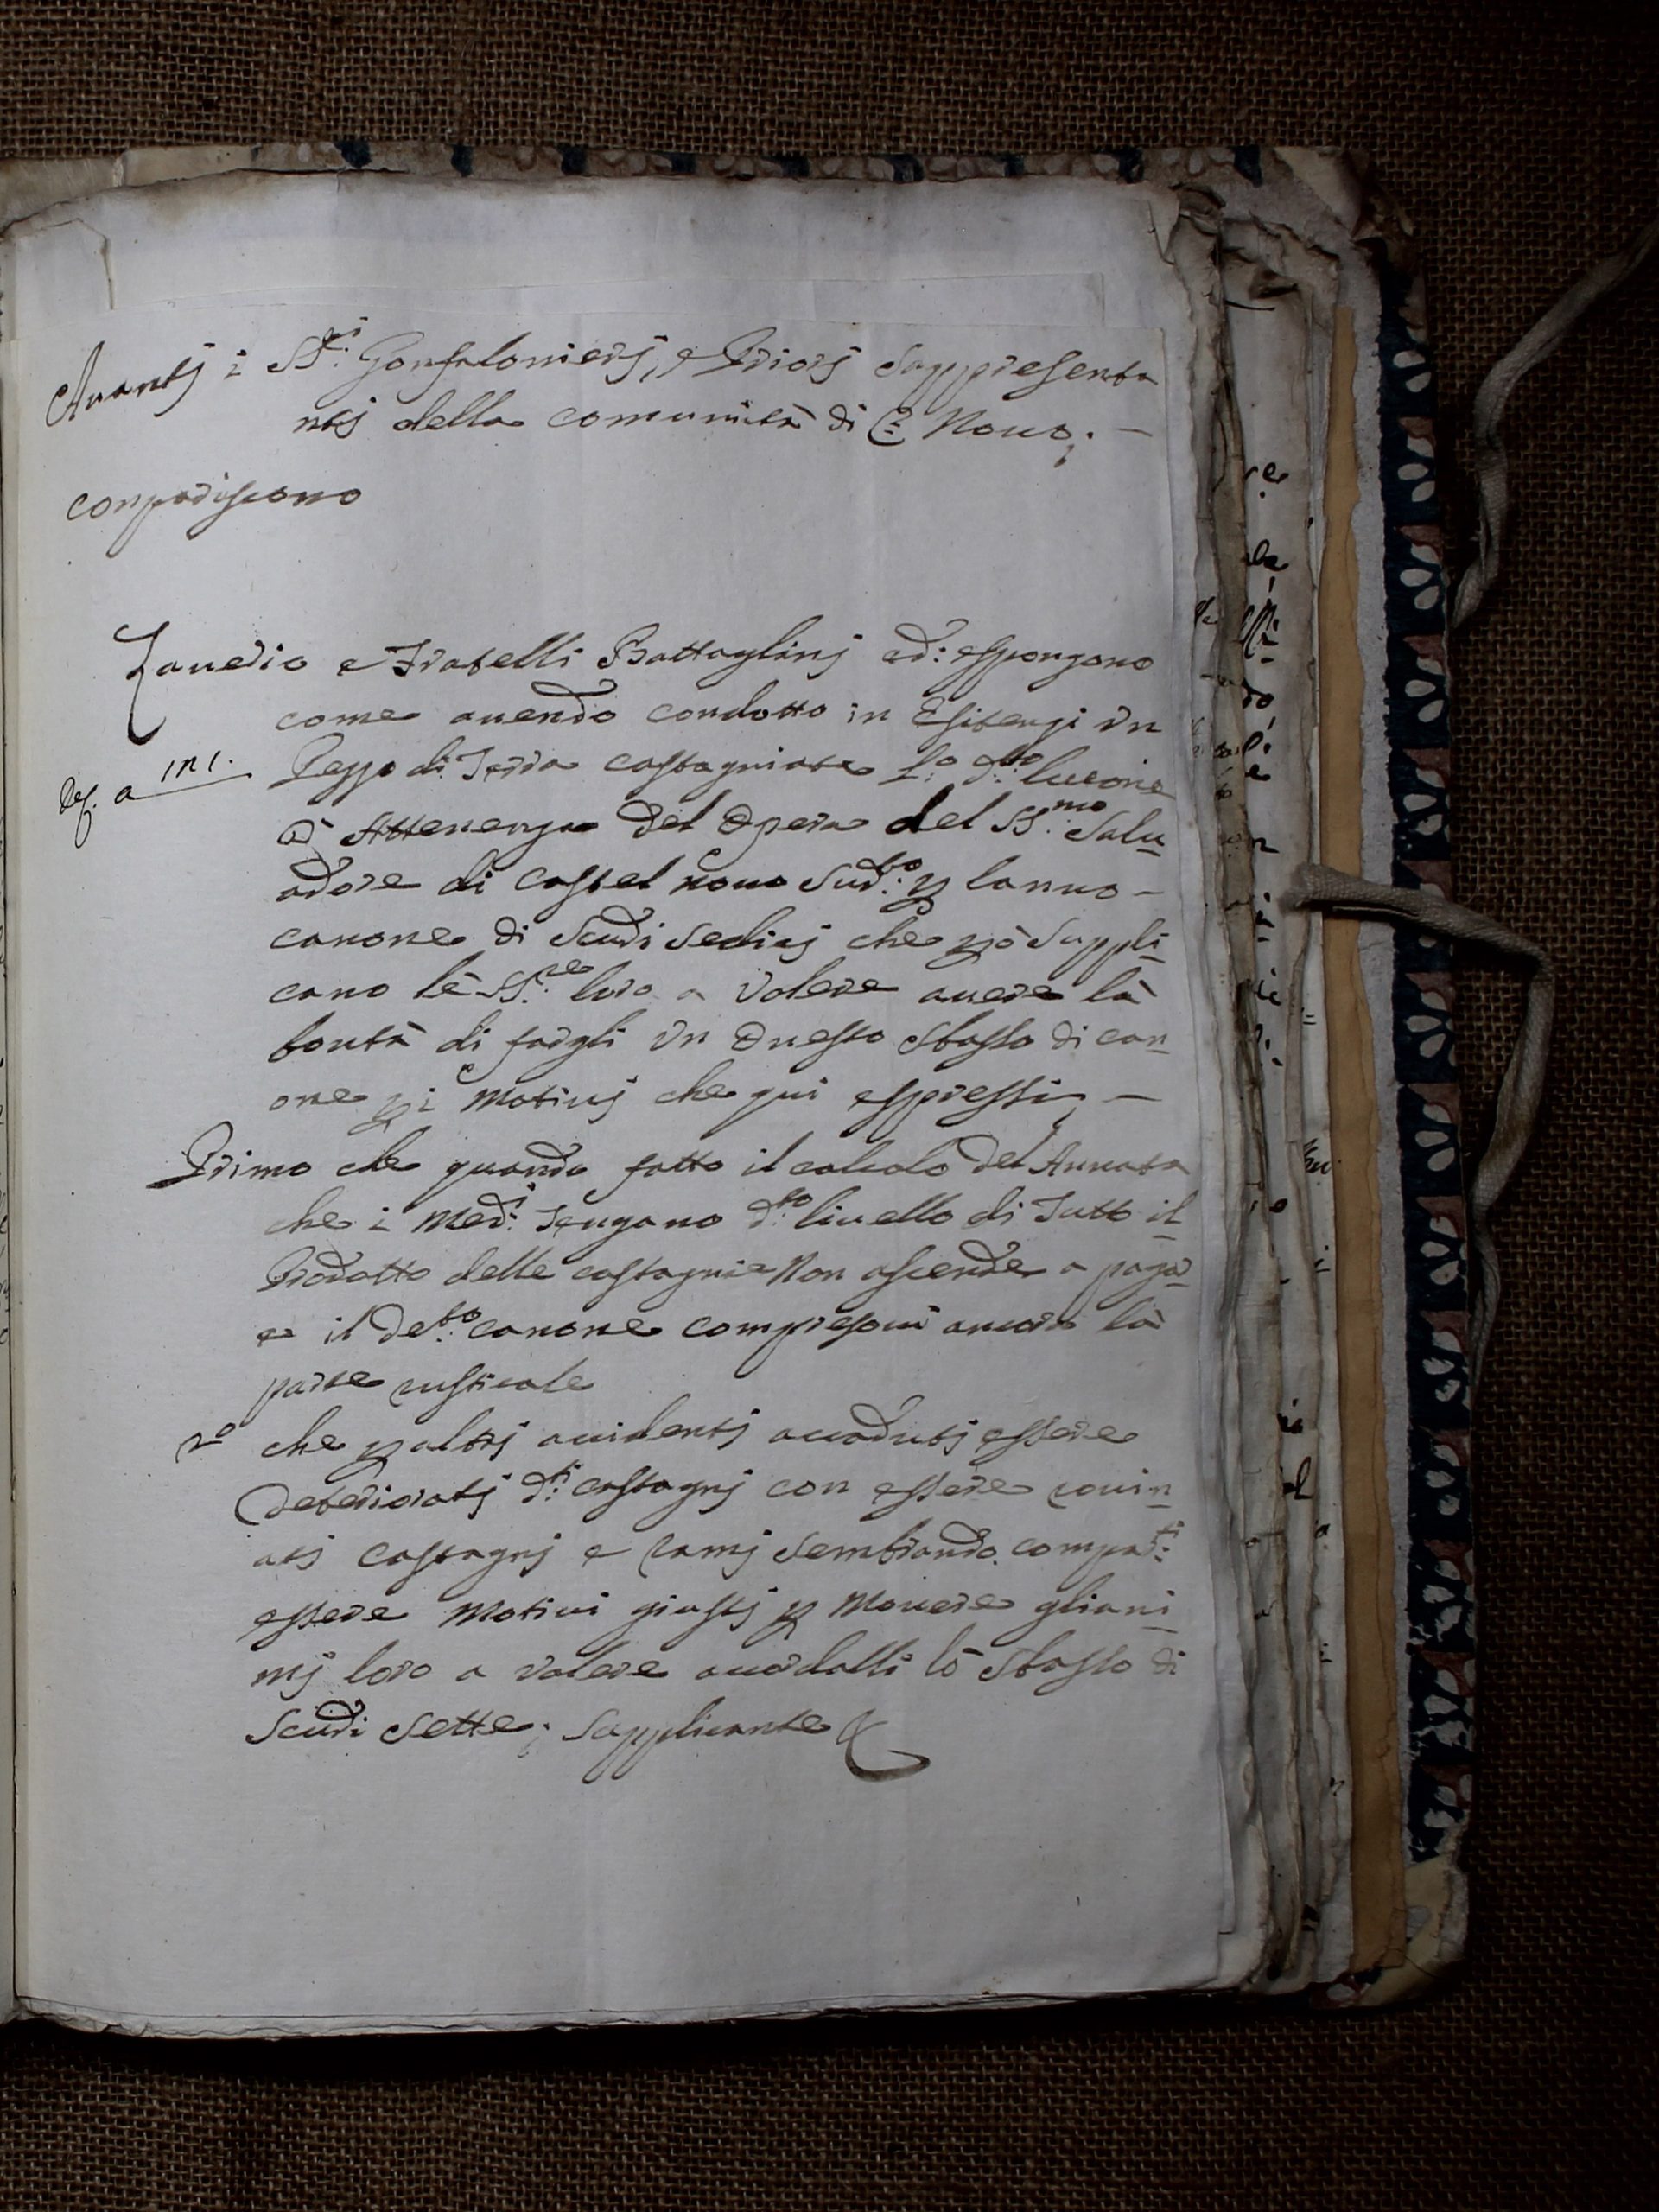 Auantj i SS.ri Gonfalonierj, e Priorj Rappresenta
ntj della comunità di C: Nouo; —
conpariscono
Zanedio e Fratelli Battaglinj ed: esspongano
come auendo condotto in Efitenzi vn
Pezzo di Terra castagniate l:o d:to
Def. a 171.
Attenenza del Opera del SS.mo Salu
adore di castel nouo Sud:to p lanno —
canone di Scudi Sedicj che pò Suppli
cano le SS.re loro a volere auere là
bontà di fargli vn Onesto Sbasso di can
one p i Motiuj che qui esspressi, —
Primo che quando fatto il calcolo del Annata
che i Med:i Tengano d:to liuello di Tutto il
Prodotto delle castagnie Non ascende a pagar
e il de:to canone compresoui ancora là
parte rusticale
2o che p altrj accidentj accadutj essere
deterioratj d:ti castagnj con essere rouin
atj castagnj e ramj Sembrando compar:ti
essere Motiui giustj p Mouere gliani
mj loro a volere accordalli lò Sbasso di
Scudi Sette; Supplicante &